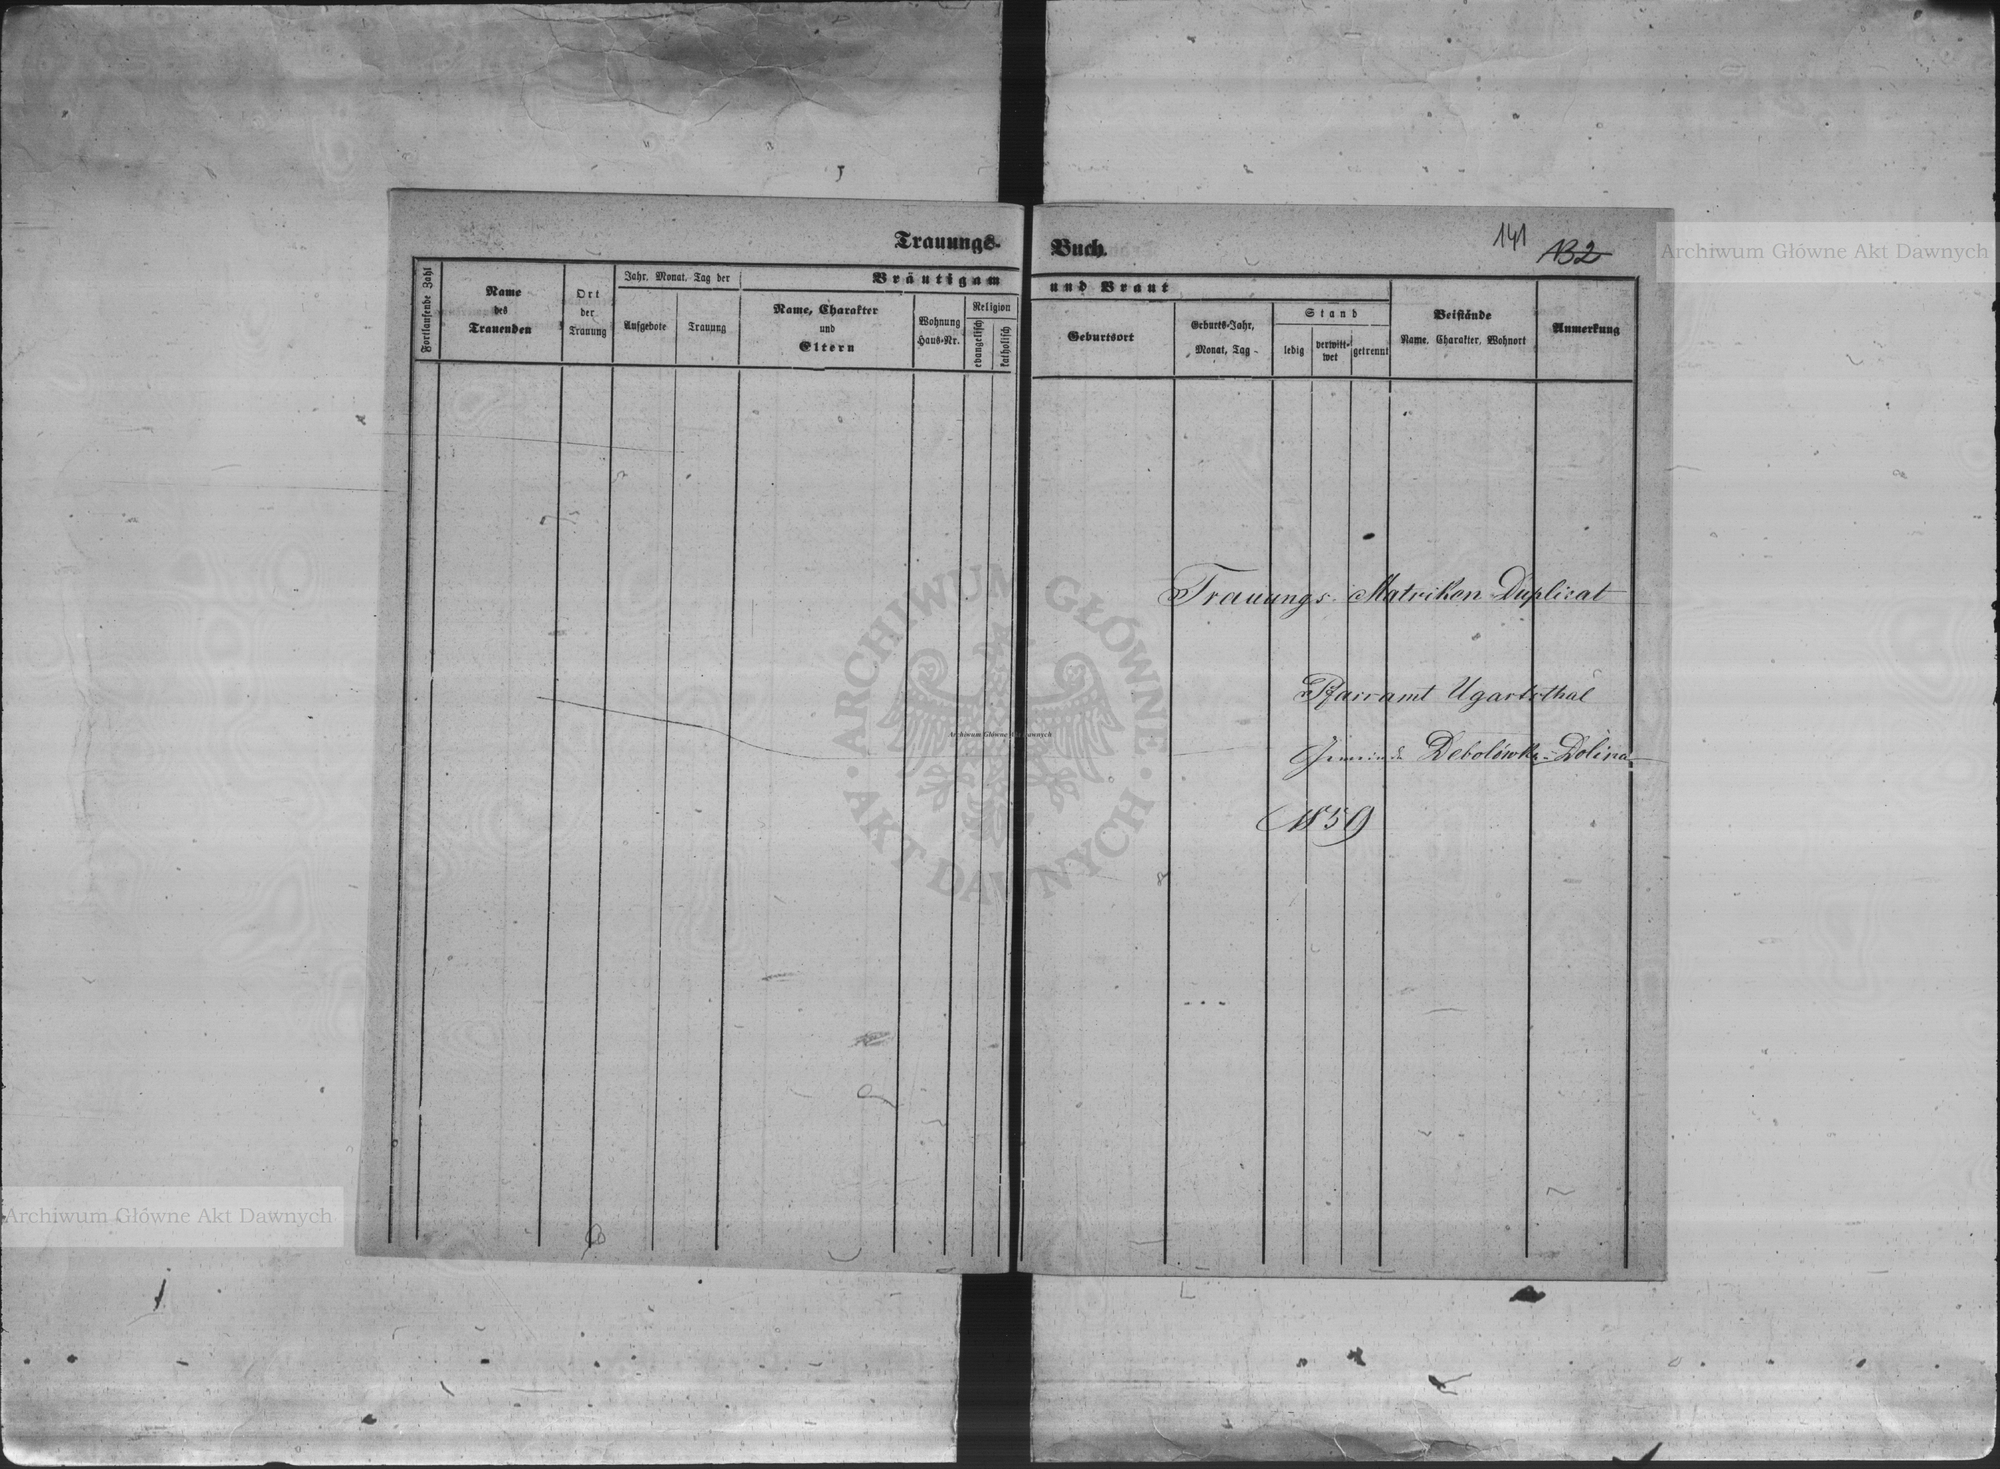 Trauungs-
Fortlaufende Zahl
Name
des
Trauenden
Ort
der
Trauung
Jahr, Monat, Tag der
Aufgebote
Trauung
Bräutigam
Name, Charakter
und
Eltern
Wohnung
Haus-Nr.
Religion
evangelisch
katholisch
Buch.
141 132
und Braut
Geburtsort
Geburts-Jahr,
Monat, Tag
Stand
ledig
verwitt-
wet
getrennt
Beistände
Name, Charakter, Wohnort
Anmerkung
Trauungs-Matriken-Duplicat
Pfarramt Ugartsthal
Gemeinde Debolówka-Dolina
1859
Archiwum Główne Akt Dawnych
ARCHIWUM GŁÓWNE
AKT DAWNYCH
Archiwum Główne Akt Dawnych
Archiwum Główne Akt Dawnych